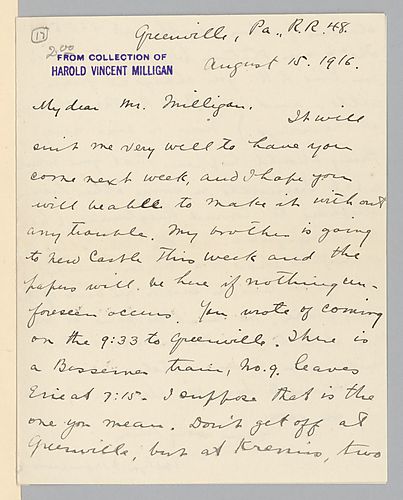 17
Greenville, Pa., R.R. 48.
2.00
FROM COLLECTION OF
HAROLD VINCENT MILLIGAN
August 15. 1916.
My dear Mr. Milligan.
It will
suit me very well to have you
come next week, and I hope you
will be able to make it without
any trouble. My brother is going
to New Castle this week and the
papers will be here if nothing un-
foreseen occurs. You wrote of coming
on the 9:33 to Greenville. There is
a Bessemer train, No. 9. leaves
Erie at 7:15. I suppose that is the
one you mean. Don't get off at
Greenville, but at Kremis, two